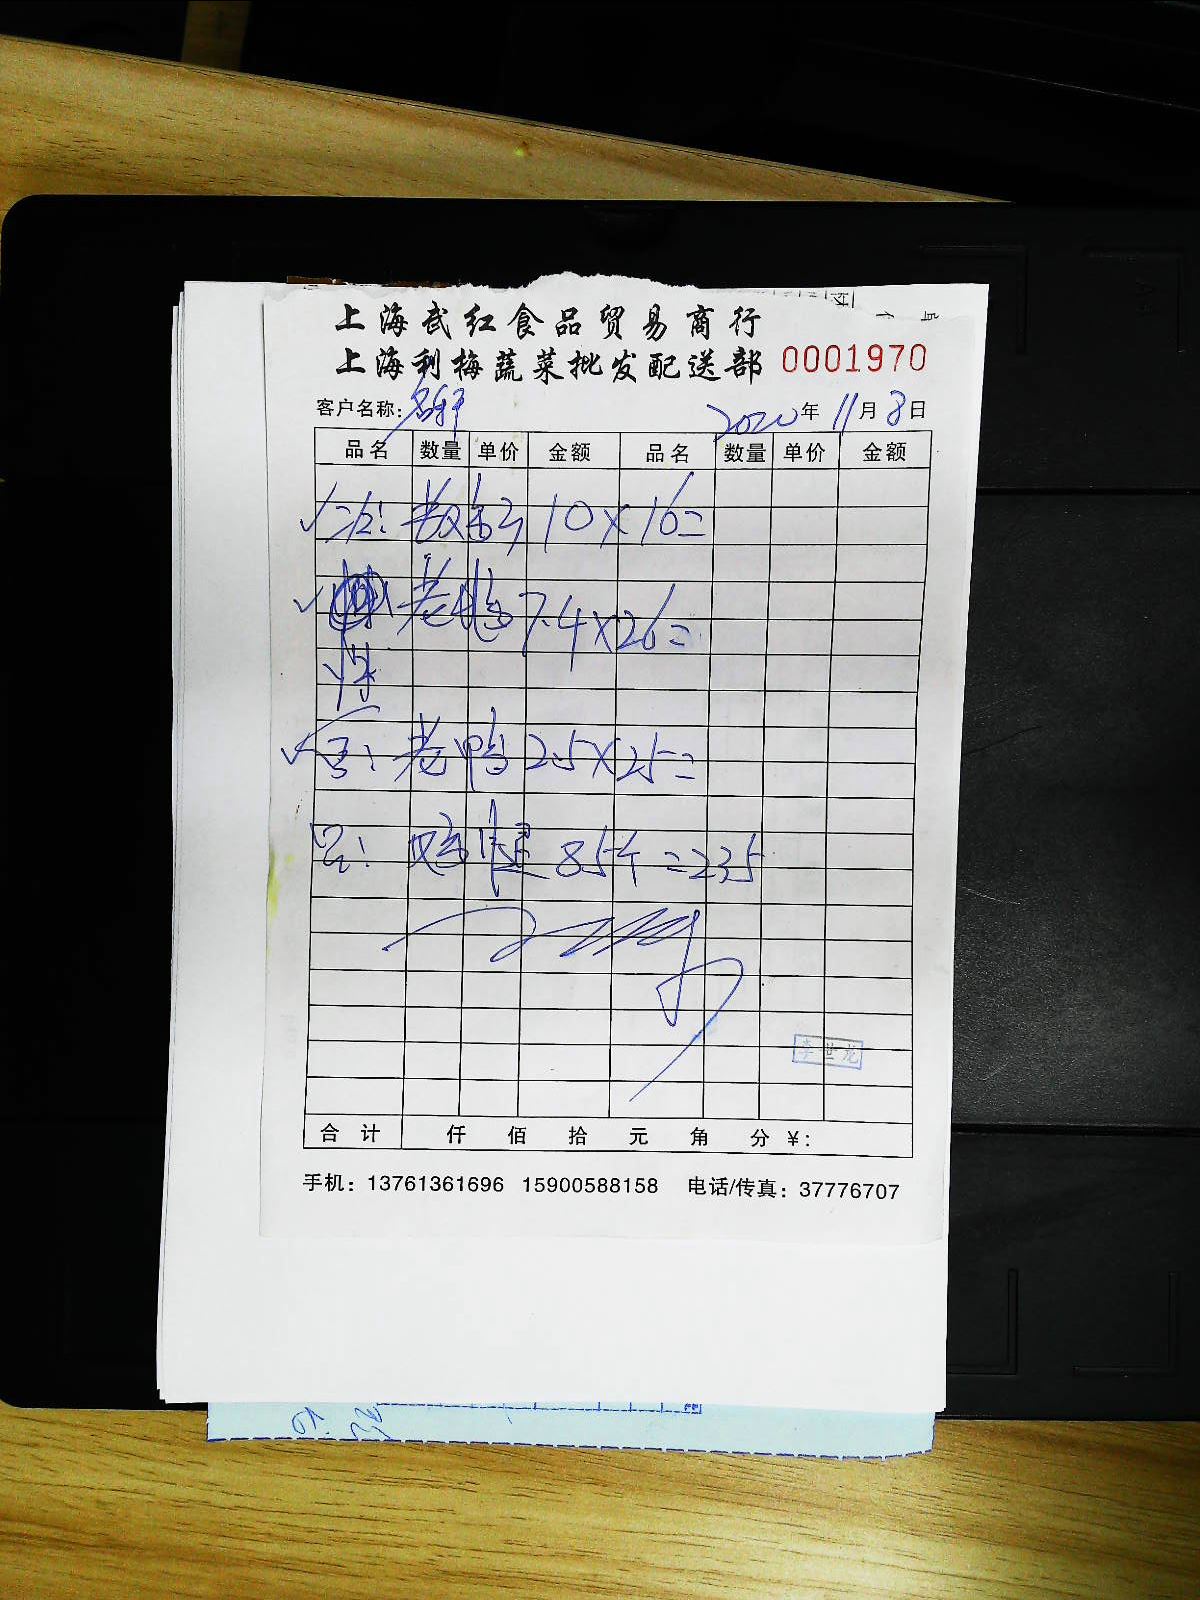 上海武红食品贸易商行
上海利梅蔬菜批发配送部 0001970
客户名称: 2020年11月8日
品名 数量 单价 金额 品名 数量 单价 金额
10×16=
老鸭 7.4×26=
老鸭 25×25=
85个=235
李世龙
合计 仟 佰 拾 元 角 分 ¥:
手机: 13761361696 15900588158 电话/传真: 37776707